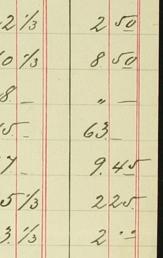 2 1/3 2 50
0 1/3 8 50
8 – " –
5 – 63 –
7 – 9.45
5 1/3 225
3 1/3 2 "